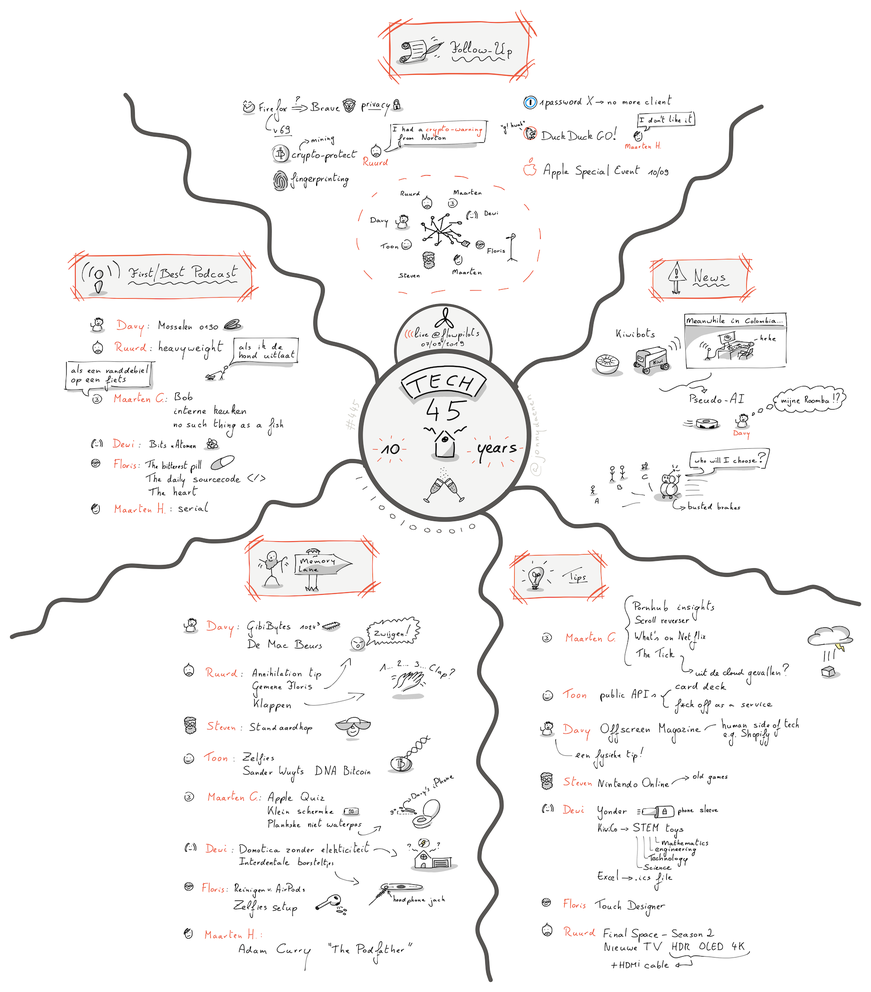 Follow-Up
Firefox ? ⇒ Brave privacy
v69
mining
crypto-protect
fingerprinting
I had a crypto-warning
from Norton
Ruurd
1password X → no more client
DuckDuckGO!
I don't like it
Maarten H.
Apple Special Event 10/09
Ruurd
Maarten
Davy
Dewi
Toon
Floris
Steven
Maarten
First/Best Podcast
Davy: Mosselen 0130
Ruurd: heavyweight
als ik de
hond uitlaat
als een randdebiel
op een fiets
Maarten C: Bob
interne keuken
no such thing as a fish
Dewi: Bits & Atomen
Floris: The bitterest pill
The daily sourcecode </>
The heart
Maarten H.: serial
News
Meanwhile in Colombia...
hehe
Kiwibots
Pseudo-AI
mijne Roomba!!?
Davy
who will I choose?
A
B
C
busted brakes
live @ flowpilots
07/09/2019
TECH
45
10 years
#445
Memory
Lane
Davy: GibiBytes 1024³
De Mac Beurs
Zwijgen!
Ruurd: Annihilation tip
Gemene Floris
Klappen
1... 2... 3... Clap?
Steven: Standaardhop
Toon: Zelfies
Sander Wuyts DNA Bitcoin
Maarten C: Apple Quiz
Klein schermke
Plankske niet waterpas
Davy's iPhone
Dewi: Domotica zonder elektriciteit
Interdentale borsteltjes
Floris: Reinigen v. AirPods
Zelfies setup
headphone jack
Maarten H.:
Adam Curry "The Podfather"
Tips
Maarten C
Pornhub insights
Scroll reverser
What's on Netflix
The Tick
uit de cloud gevallen?
Toon public API's
card deck
fack off as a service
Davy Offscreen Magazine
human side of tech
e.g. Shopify
een fysieke tip!
Steven Nintendo Online
old games
Dewi Yonder phone sleeve
KiwiCo → STEM toys
Mathematics
engineering
Technology
Science
Excel → .ics file
Floris Touch Designer
Ruurd Final Space - Season 2
Nieuwe TV HDR OLED 4K
+ HDMI cable